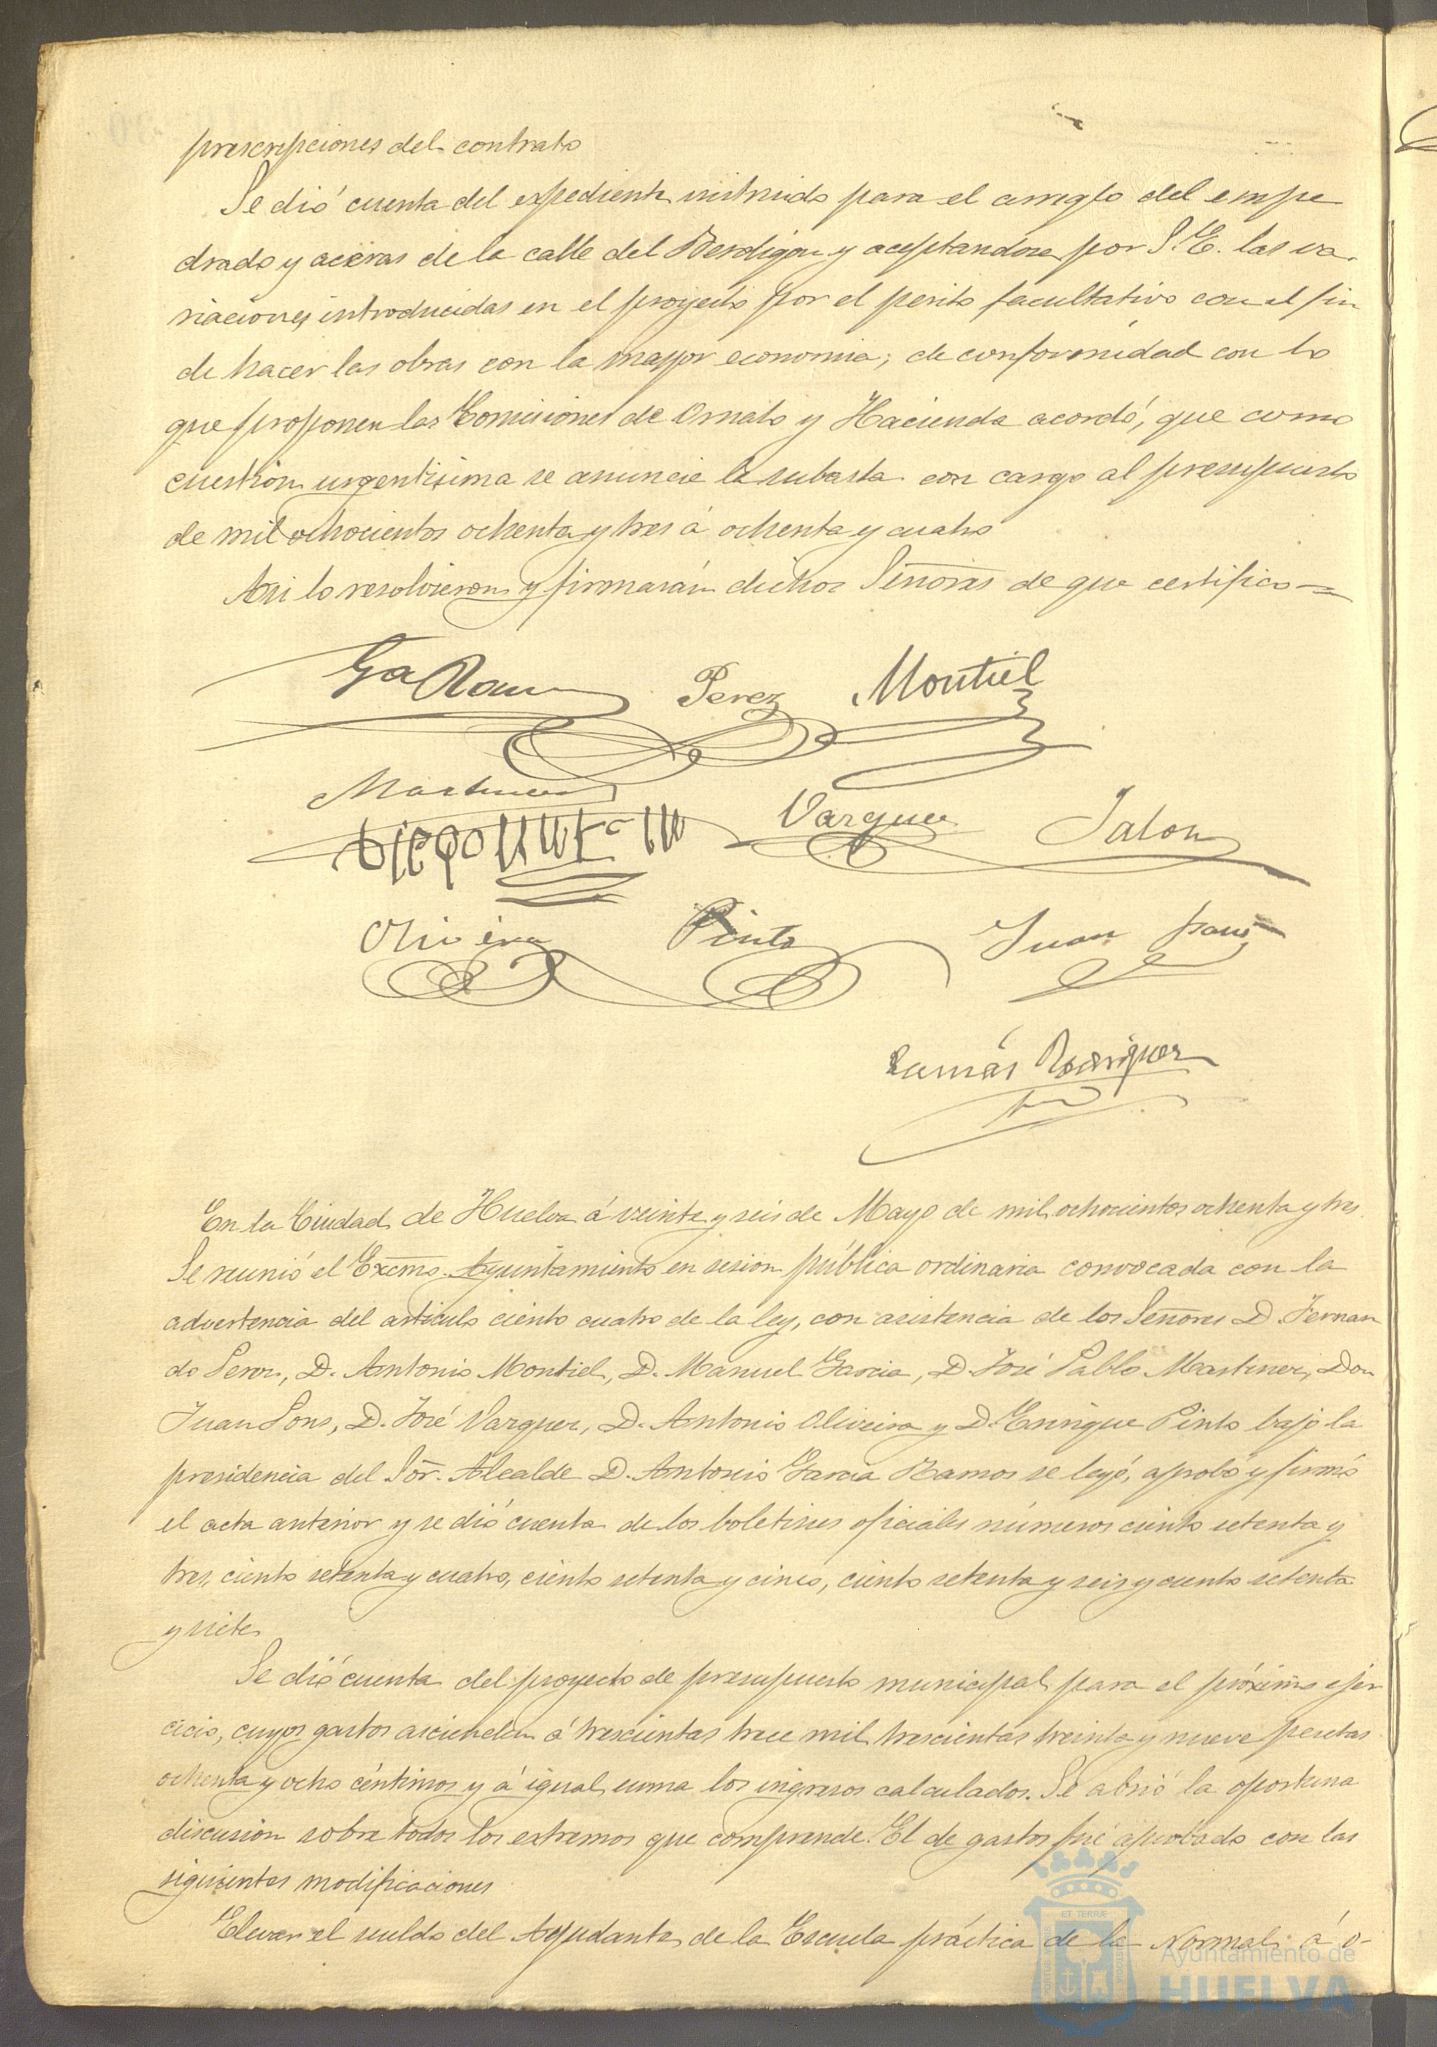 prescripciones del contrato
Se dió cuenta del expediente instruido para el arreglo del empe
drado y aceras de la calle del Berdigon y aceptandose por S. E. las va-
riaciones introducidas en el proyecto por el perito facultativo con el fin
de hacer las obras con la mayor economia; de conformidad con lo
que proponen las Comisiones de Ornato y Hacienda acordó, que como
cuestion urgentisima se anuncie la subasta con cargo al presupuesto
de mil ochocientos ochenta y tres á ochenta y cuatro
Asi lo resolvieron y firmarán dichos Señores de que certifico=
Ga Ramos Perez Montiel
Martinez
Vazquez Jalon
Oliveira Pinto Juan Pons
Tomás Rodriguez
En la Ciudad de Huelva á veinte y seis de Mayo de mil ochocientos ochenta y tres.
Se reunió el Excmo. Ayuntamiento en sesion pública ordinaria convocada con la
advertencia del articulo ciento cuatro de la ley, con asistencia de los Señores D. Fernan
do Perez, D. Antonio Montiel, D. Manuel Garcia, D. José Pablo Martinez, Don
Juan Pons, D. José Vazquez, D. Antonio Oliveira y D. Enrique Pinto bajo la
presidencia del Sor. Alcalde D. Antonio Garcia Ramos se leyó, aprobó y firmó
el acta anterior y se dió cuenta de los boletines oficiales números ciento setenta y
tres, ciento setenta y cuatro, ciento setenta y cinco, ciento setenta y seis y ciento setenta
y siete.
Se dió cuenta del proyecto de presupuesto municipal para el próximo ejer
cicio, cuyos gastos ascienden á trescientas trece mil trescientas treinta y nueve pesetas
ochenta y ocho céntimos y á igual suma los ingresos calculados. Se abrió la oportuna
discusion sobre todos los extremos que comprende. El de gastos fué aprobado con las
siguientes modificaciones
Elevar el sueldo del Ayudante de la Escuela práctica de la Normal á o-
Ayuntamiento de
HUELVA